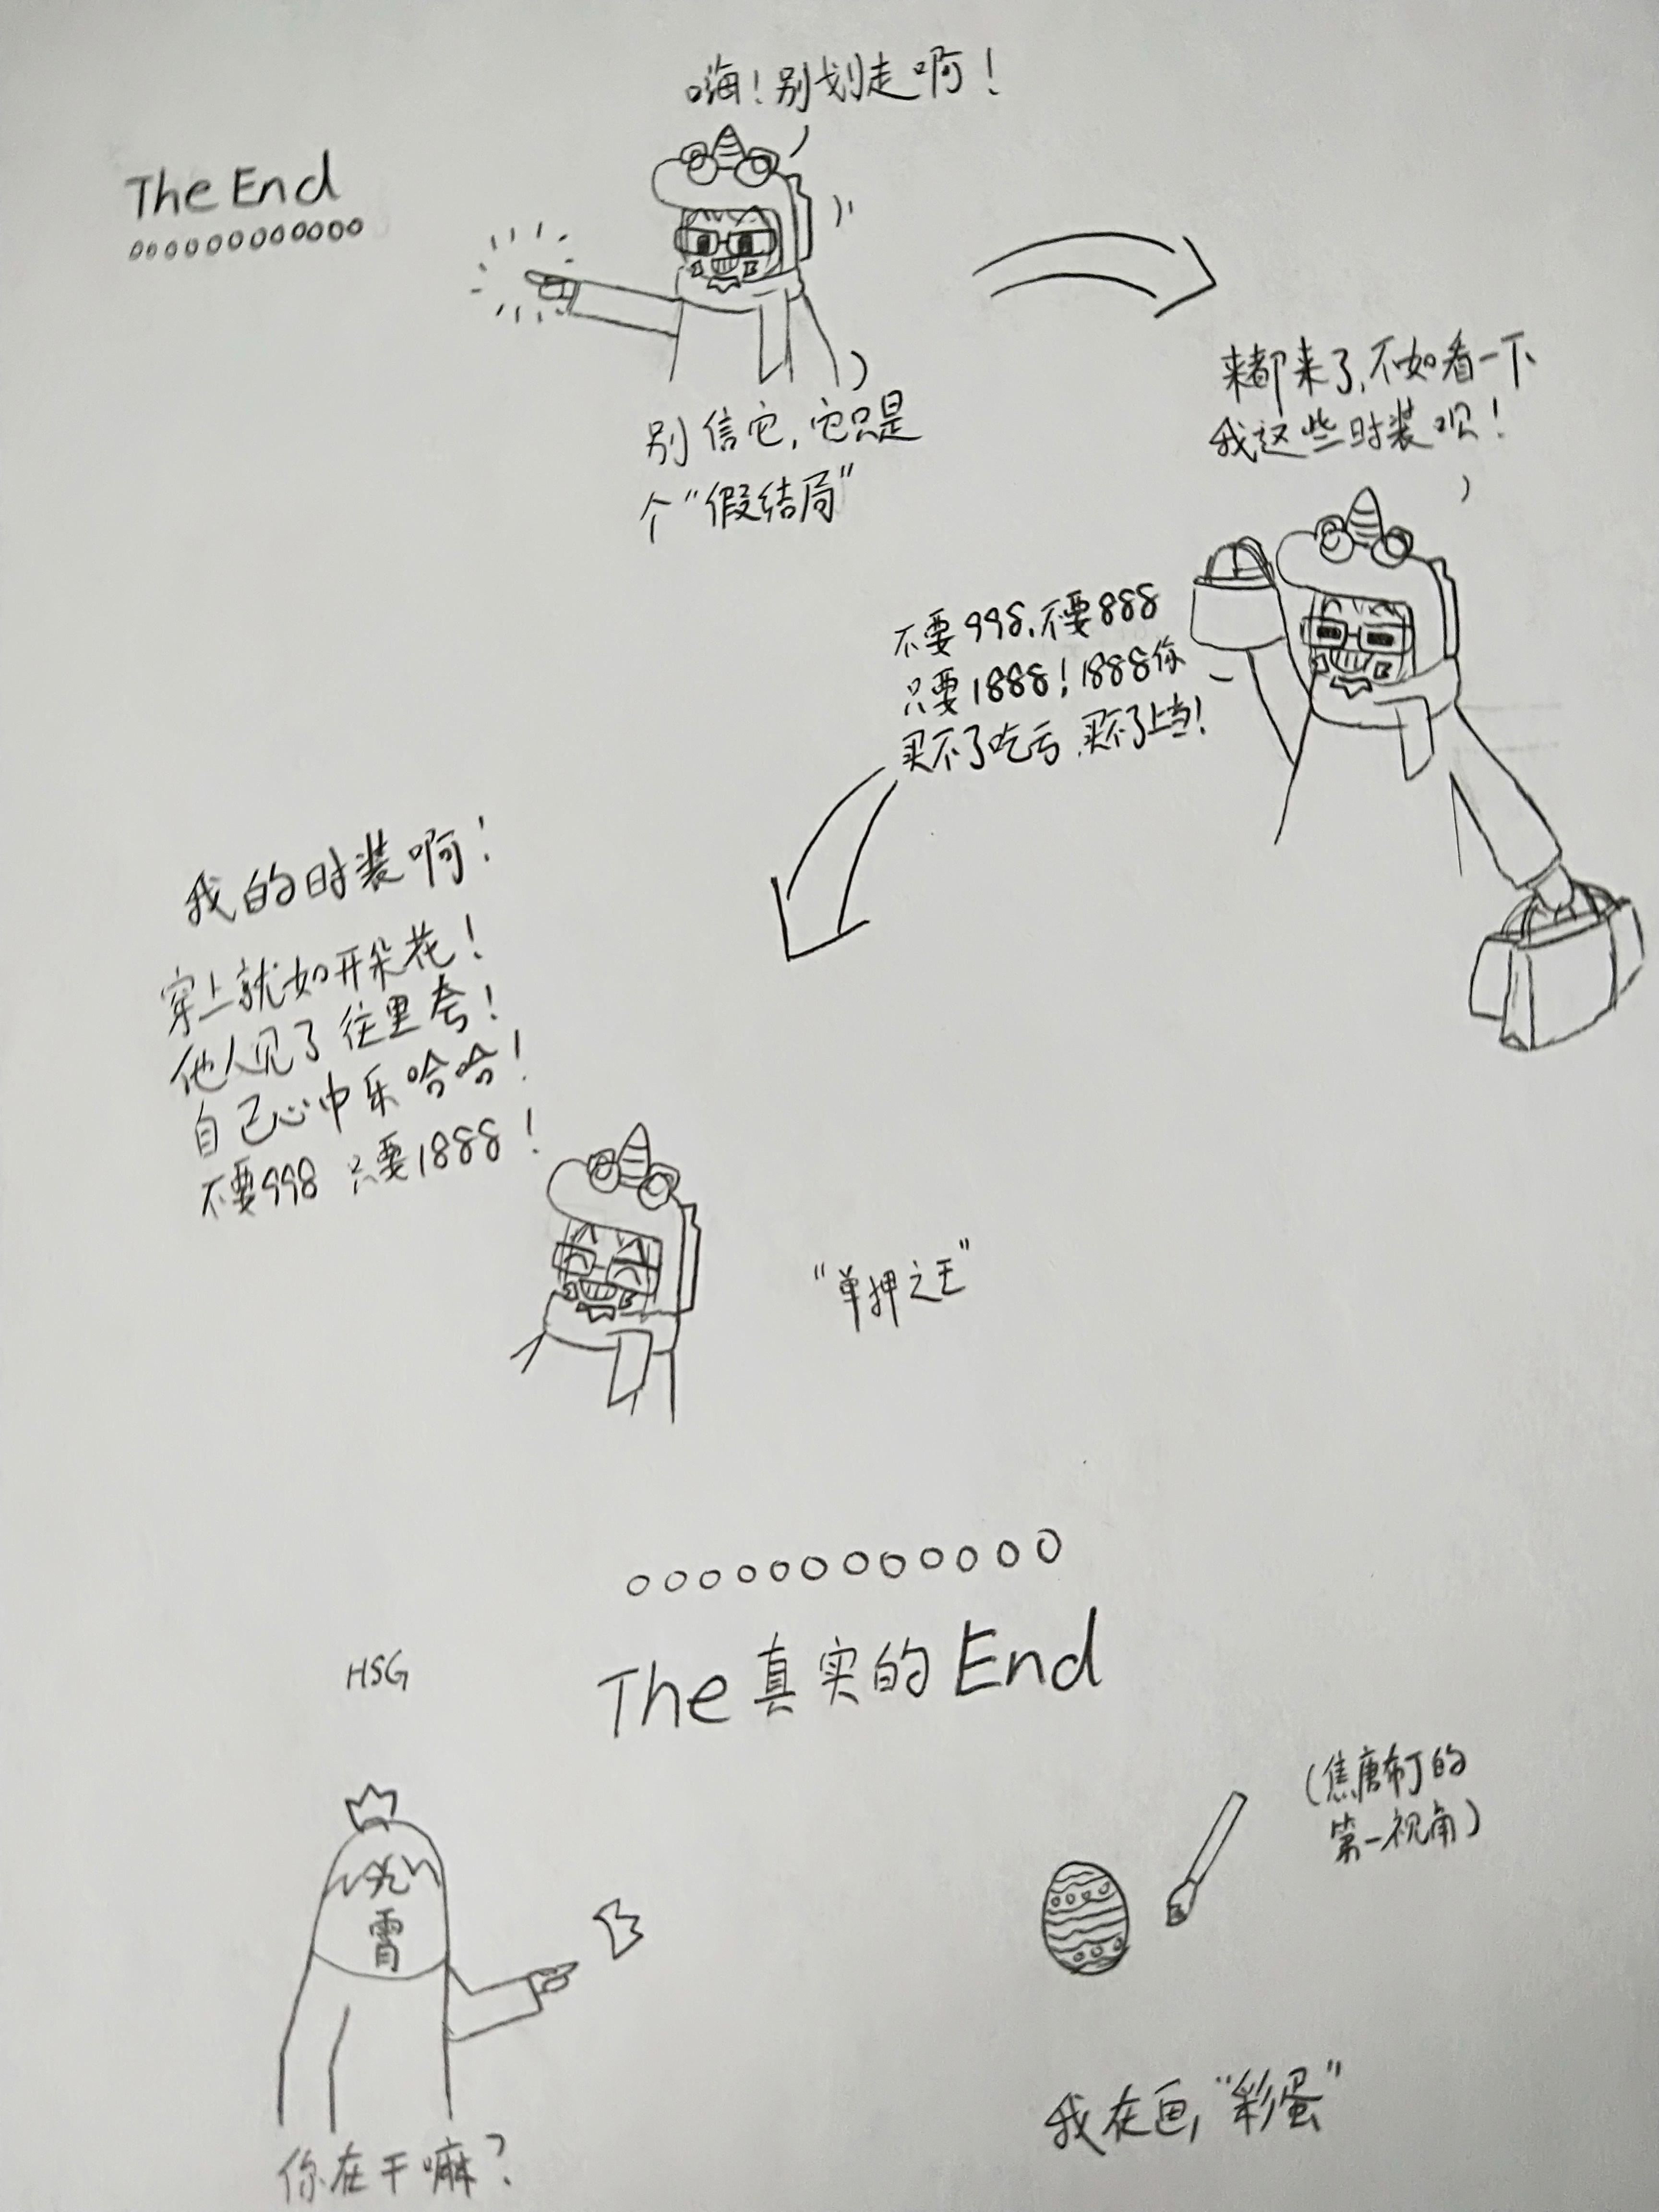 嗨！别划走啊！
The End
别信它，它只是
个“假结局”
来都来了，不如看一下
我这些时装呗！
不要998，不要888
只要1888！1888你
买不了吃亏，买不了上当！
我的时装啊！
穿上就如开朵花！
他人见了往里夸！
自己心中乐哈哈！
不要998 只要1888！
“单押之王”
The 真实的 End
HSG
(焦唐布丁的
第一视角)
霄
你在干嘛？
我在画“彩蛋”